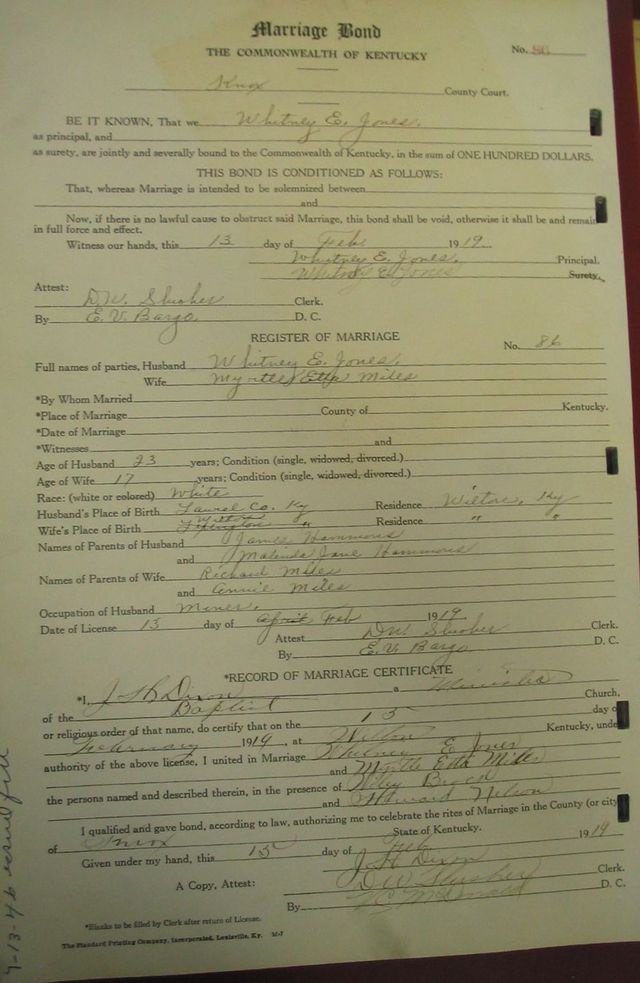 Marriage Bond
THE COMMONWEALTH OF KENTUCKY
No. 86
Knox County Court.
BE IT KNOWN, That we Whitney E. Jones.
as principal, and
as surety, are jointly and severally bound to the Commonwealth of Kentucky, in the sum of ONE HUNDRED DOLLARS.
THIS BOND IS CONDITIONED AS FOLLOWS:
That, whereas Marriage is intended to be solemnized between
and
Now, if there is no lawful cause to obstruct said Marriage, this bond shall be void, otherwise it shall be and remain
in full force and effect.
Witness our hands, this 13 day of Feb 1919.
Whitney E. Jones. Principal.
Whitney E. Jones Surety.
Attest:
D.W. Slusher Clerk.
By E.V. Bargo. D. C.
REGISTER OF MARRIAGE
No. 86
Full names of parties, Husband Whitney E. Jones.
Wife Myrtle Etta Miles
*By Whom Married
*Place of Marriage County of Kentucky.
*Date of Marriage
*Witnesses and
Age of Husband 23 years; Condition (single, widowed, divorced.)
Age of Wife 17 years; Condition (single, widowed, divorced.)
Race: (white or colored) White
Husband's Place of Birth Laurel Co. Ky Residence Wilton, Ky
Wife's Place of Birth Wilton " Residence " "
Names of Parents of Husband James Hammons
and Malinda Jane Hammons
Names of Parents of Wife Richard Miles
and Annie Miles
Occupation of Husband Miner.
Date of License 13 day of April Feb 1919
Attest D.W. Slusher Clerk.
By E.V. Bargo D. C.
*RECORD OF MARRIAGE CERTIFICATE
*I, J H Dixon a Minister
of the Baptist Church,
or religious order of that name, do certify that on the 15 day of
February 1919, at Wilton Kentucky, under
authority of the above license, I united in Marriage Whitney E Jones
and Myrtle Etta Miles
the persons named and described therein, in the presence of Wiley
and Howard Nelson
I qualified and gave bond, according to law, authorizing me to celebrate the rites of Marriage in the County (or city)
of Knox State of Kentucky.
Given under my hand, this 15 day of Feb 1919
J H Dixon
A Copy, Attest: D W Slusher Clerk.
By McDonald D. C.
*Blanks to be filled by Clerk after return of License.
The Standard Printing Company, Incorporated, Louisville, Ky.